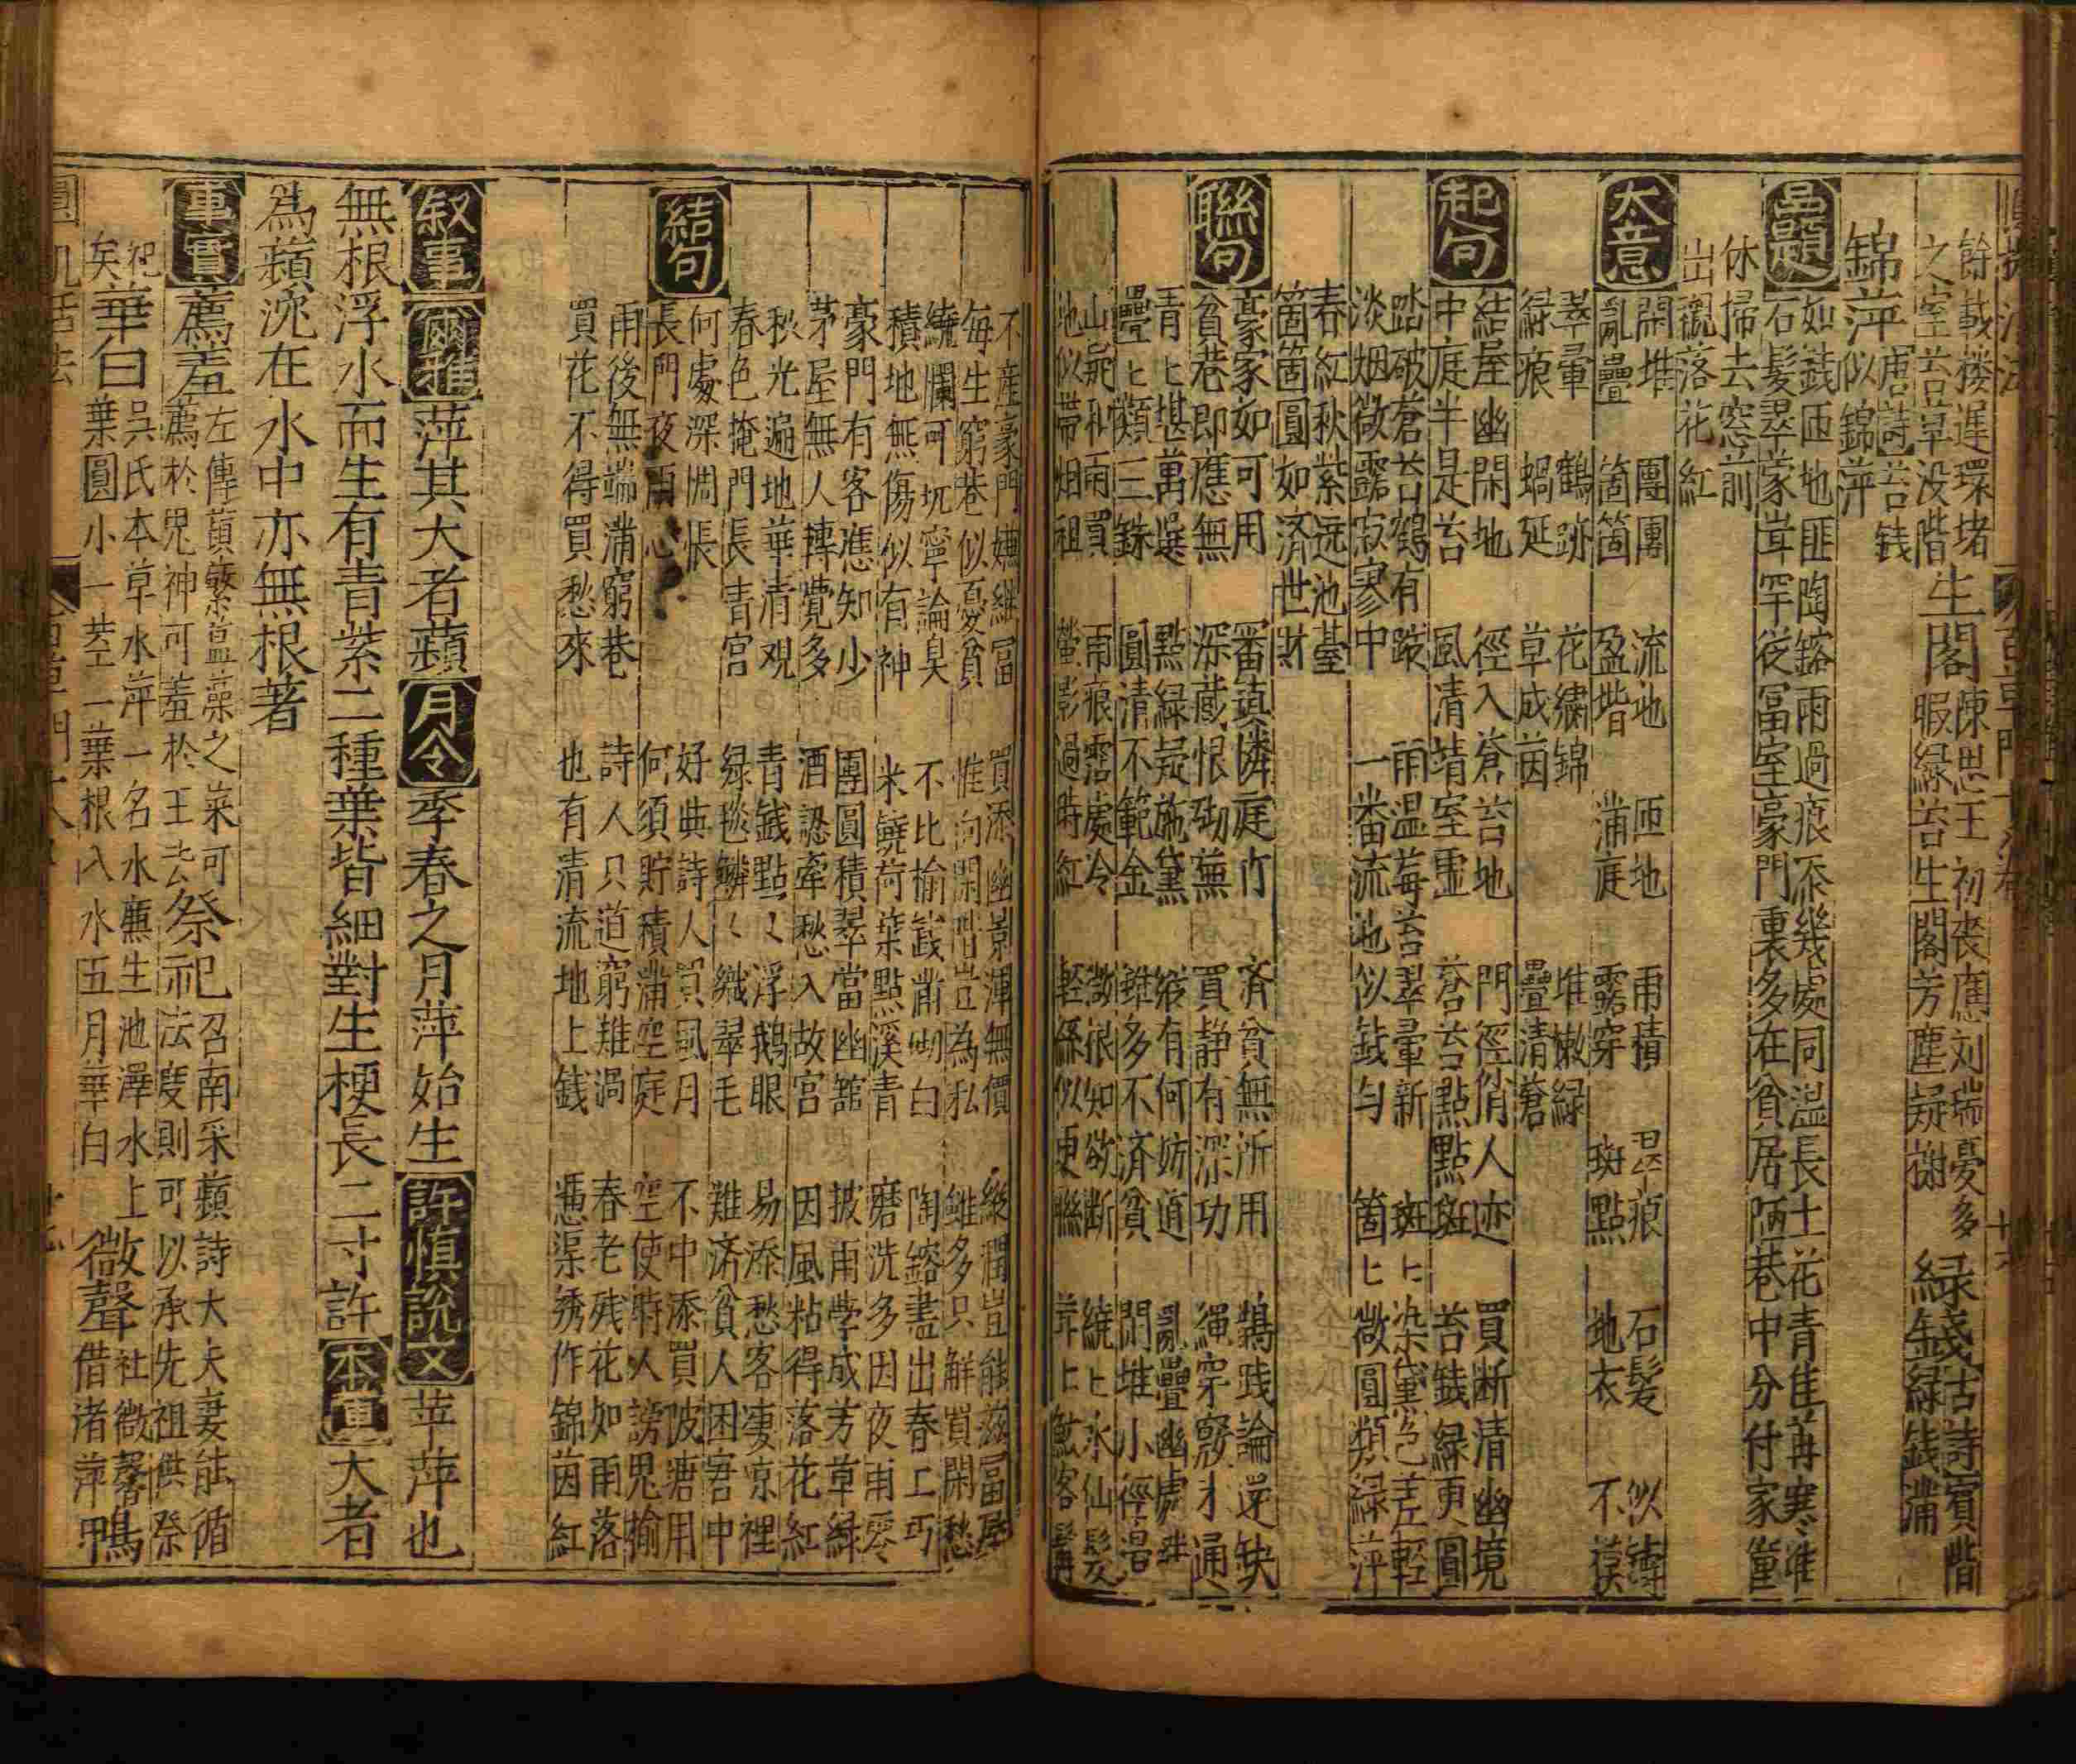 餘載棲遲環堵
之室苔草没階
生閣
陳思王初喪應刘瑞憂多
暇緑苔生閣芳塵凝榭
緑錢
古詩賓階
緑錢滿
錦萍
唐詩苔錢
似錦萍
品題
如錢匝地匪陶鎔雨過痕添幾處同温長土花青
石髮翠蒙茸罕從冨室豪門裏多在貧居陋巷中分付家童
休掃去窓前
出襯落花紅
大意
閑堆 團團 流地 匝地 雨積 暈痕 石髮
亂疊 箇箇 盈堦 滿庭 露穿 斑點 地衣 不模
翠暈 鶴跡 花繍錦 堆嫩緑
緑痕 蝸延 草成茵 疊清蒼
起句
結屋幽閑地 徑入蒼苔地 門徑俏人迹 買断清幽境
中庭半是苔 風清靖室霊 蒼苔點點斑 苔錢緑更圓
踏破蒼苔鶴有蹤 雨温莓苔翠暈新 斑匕染黛色差輕
淡烟微露寂寥中 一番流地似錢勻 箇匕微圓類緑萍
春紅秋紫遶池臺
箇箇圓如済世財
聯句
豪家如可用 畨填憐庭竹 済貧無所用 鵝践論还缺
貧巷即應無 深蔵恨砌蕪 買静有深功 縄穿竅才通
青匕堪萬選 點緑疑施黛 縦有何妨道 亂疊幽處
疊匕類三銖 圓清不範金 雖多不済貧 閒堆小徑
山 和雨買 雨痕霑處冷 微痕知欲断 繞匕水仙髮
地似帯烟租 螢影過時紅 軽絲似更聮 茸匕鮫客
不産豪門嫌継冨 買添幽景渾無價 縦潤豈能茲冨屋
毎生窮巷似憂貧 惟向閑堦豈為私 雖多只解買閑愁
繞爛可玩寧論臭 不比榆錢凿砌白 陶鎔盡出春工巧
積地無傷似有神 未饒荷葉點溪青 磨洗多因夜雨零
豪門有客應知少 團圓積翠當幽舘 披雨學成芳草緑
茅屋無人轉覺多 酒認牽愁入故宮 因風粘得落花紅
秋光遍地華清观 青錢點匕浮鵝眼 易添愁客凄凉裡
春色掩門長青宮 緑毯鱗匕織翠毛 難済貧人困窘中
結句
何處深惆悵 好典詩人買風月 不中添買陂塘用
長門夜雨心 何須貯積滿空庭 空使時人謗鬼揄
雨後無端滿窮巷 詩人只道窮雖滆 春老残花如雨落
買花不得買愁來 也有清流地上錢 慿渠綉作錦茵紅
叙事
爾雅
萍其大者蘋
月令
季春之月萍始生
許慎說文
苹萍也
無根浮水而生有青紫二種葉皆細對生梗長二寸許
本草
大者
為蘋沈在水中亦無根著
事實
薦羞
左傳蘋蘩薀藻之菜可
薦於鬼神可羞於王公
祭祀
召南采蘋詩大夫妻能循
法度則可以承先祖供祭
祀
矣
華白
吳氏本草水萍一名水廉生池澤水上
葉圓小一莖一葉根入水五月華白
微聲
社微馨鴨
借渚萍
圓机活法